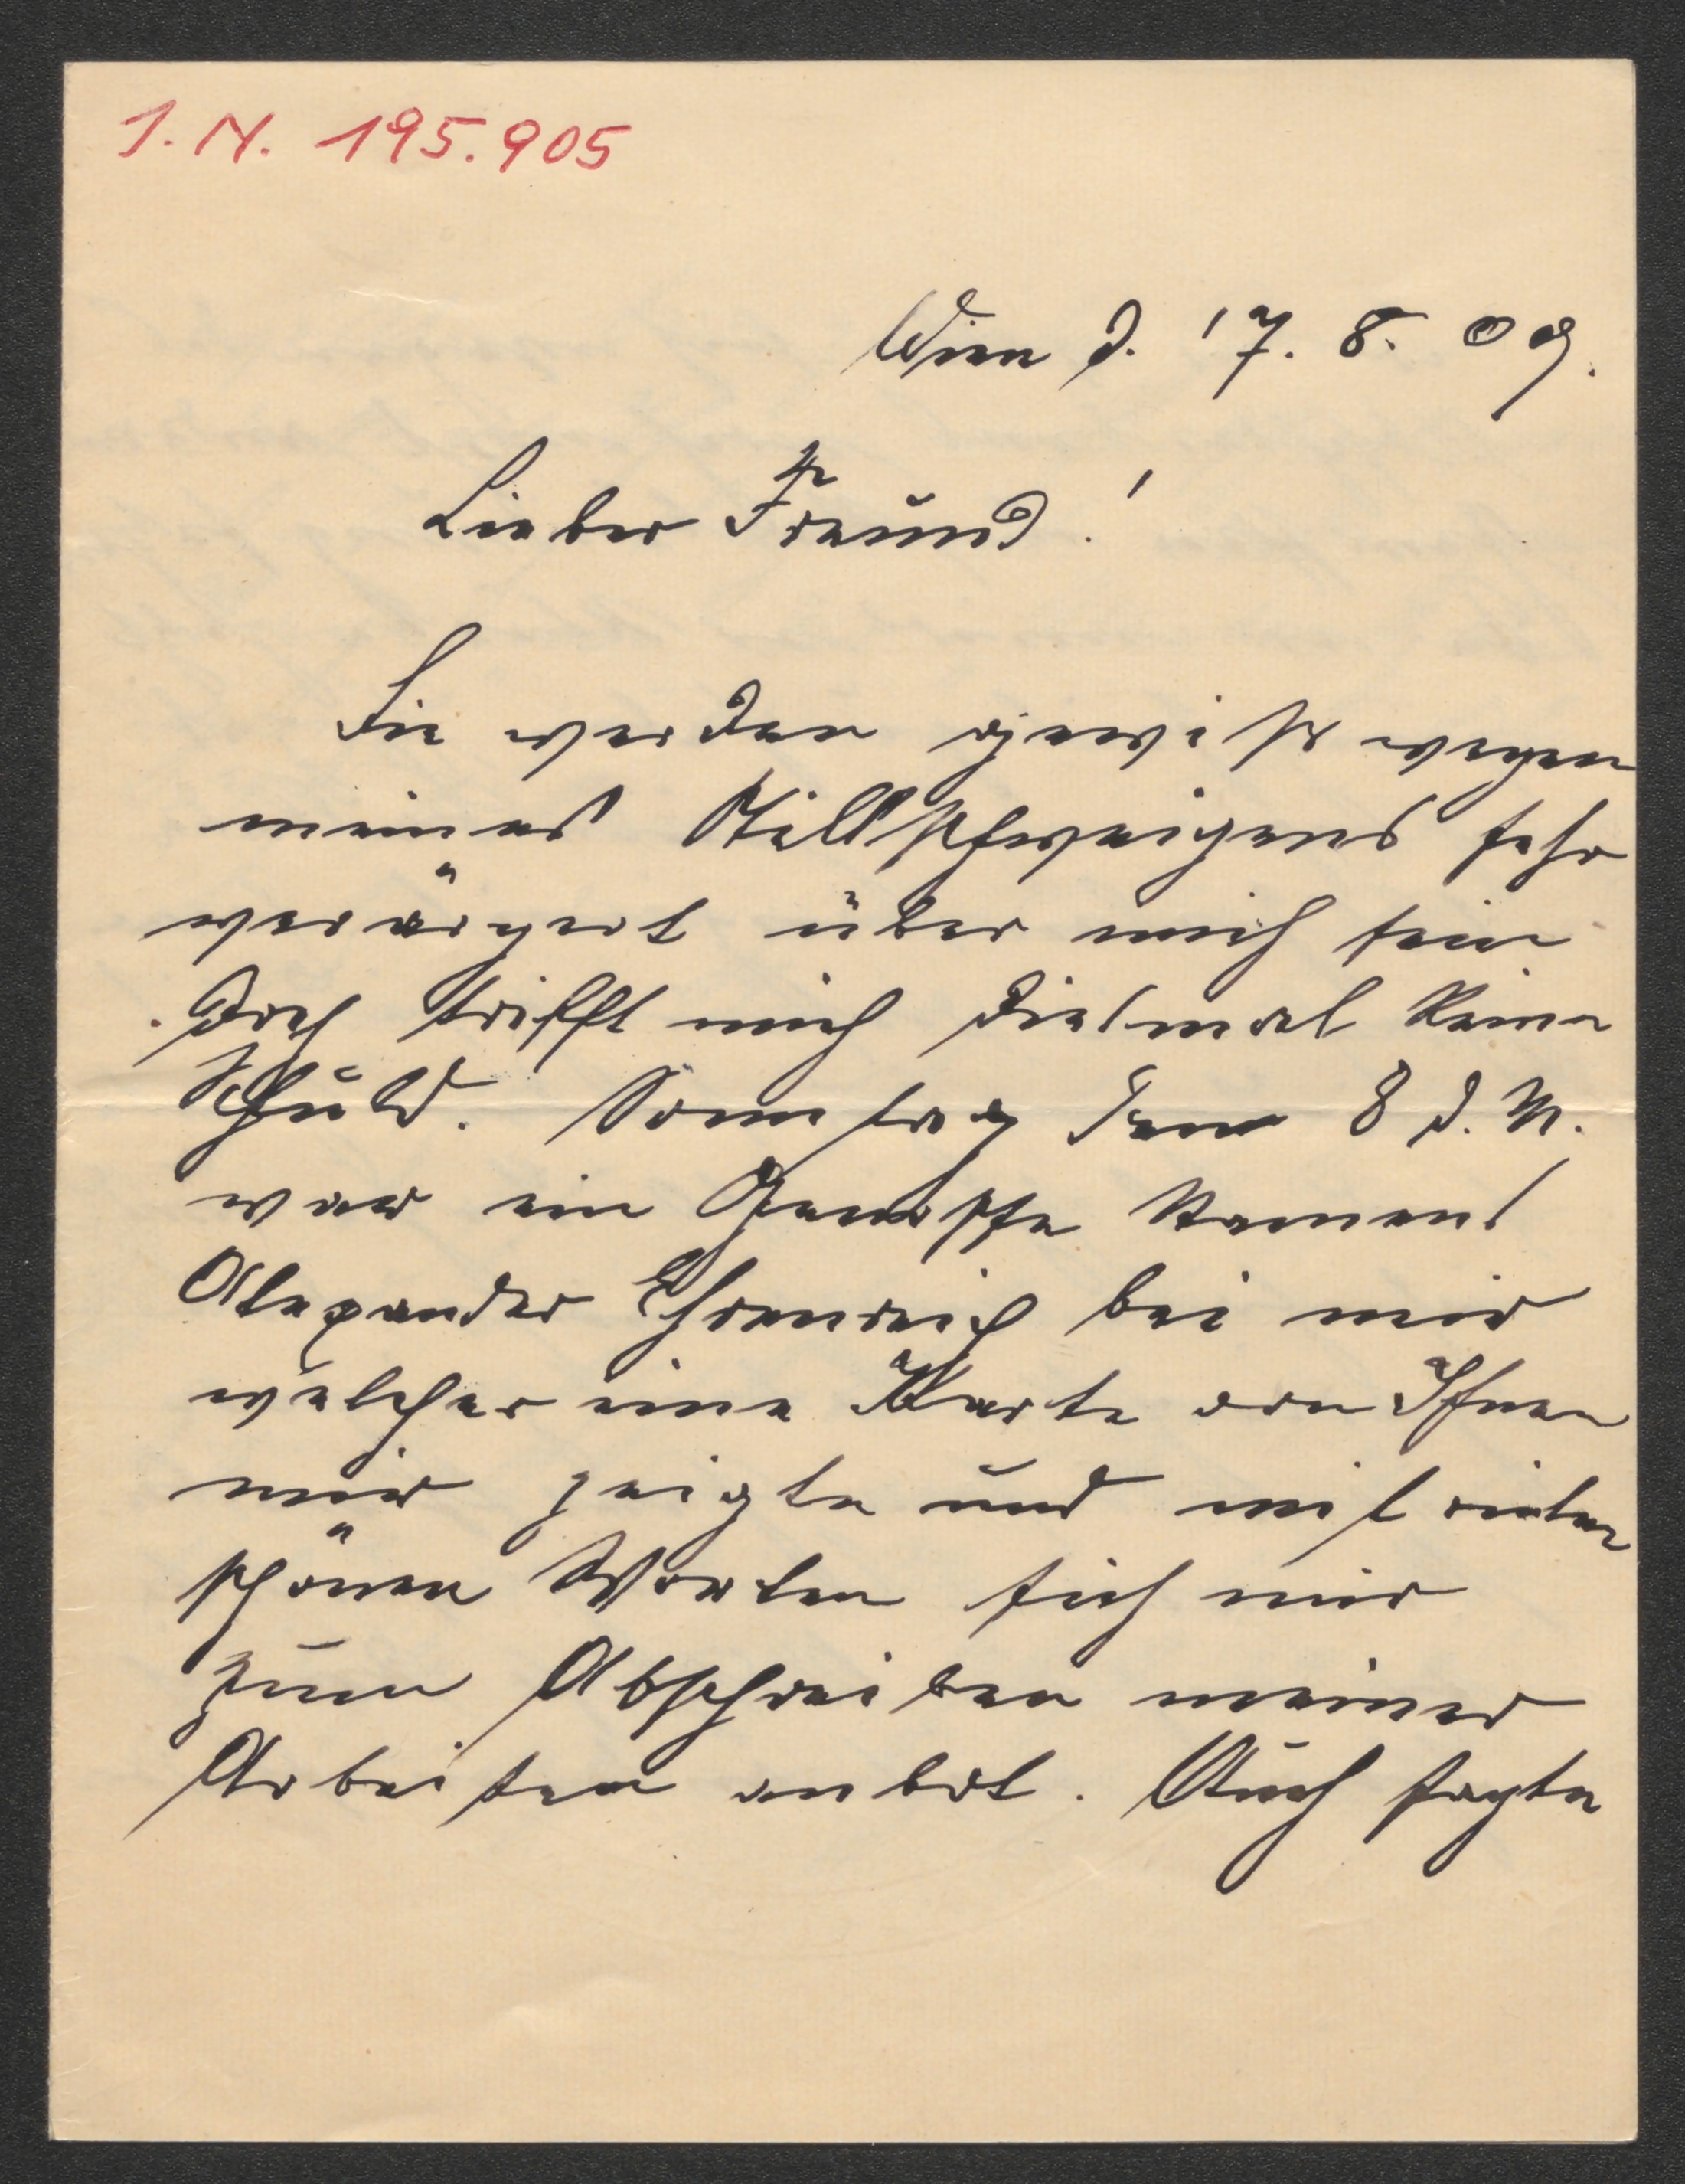 I. N. 195.905
Wien d. 17. 8. 09.
Lieber Freund!
Sie werden gewiß wegen
meines Stillschweigens sehr
verärgert über mich sein
doch trifft mich diesmal keine
Schuld. Sonntag den 8 d. M.
war ein Genosse Namens
Alexander Ehrenreich bei mir
welcher eine Karte von Ihnen
mir zeigte und mit vielen
schönen Worten sich mir
zum Abschreiben meiner
Arbeiten anbot. Auch sagte